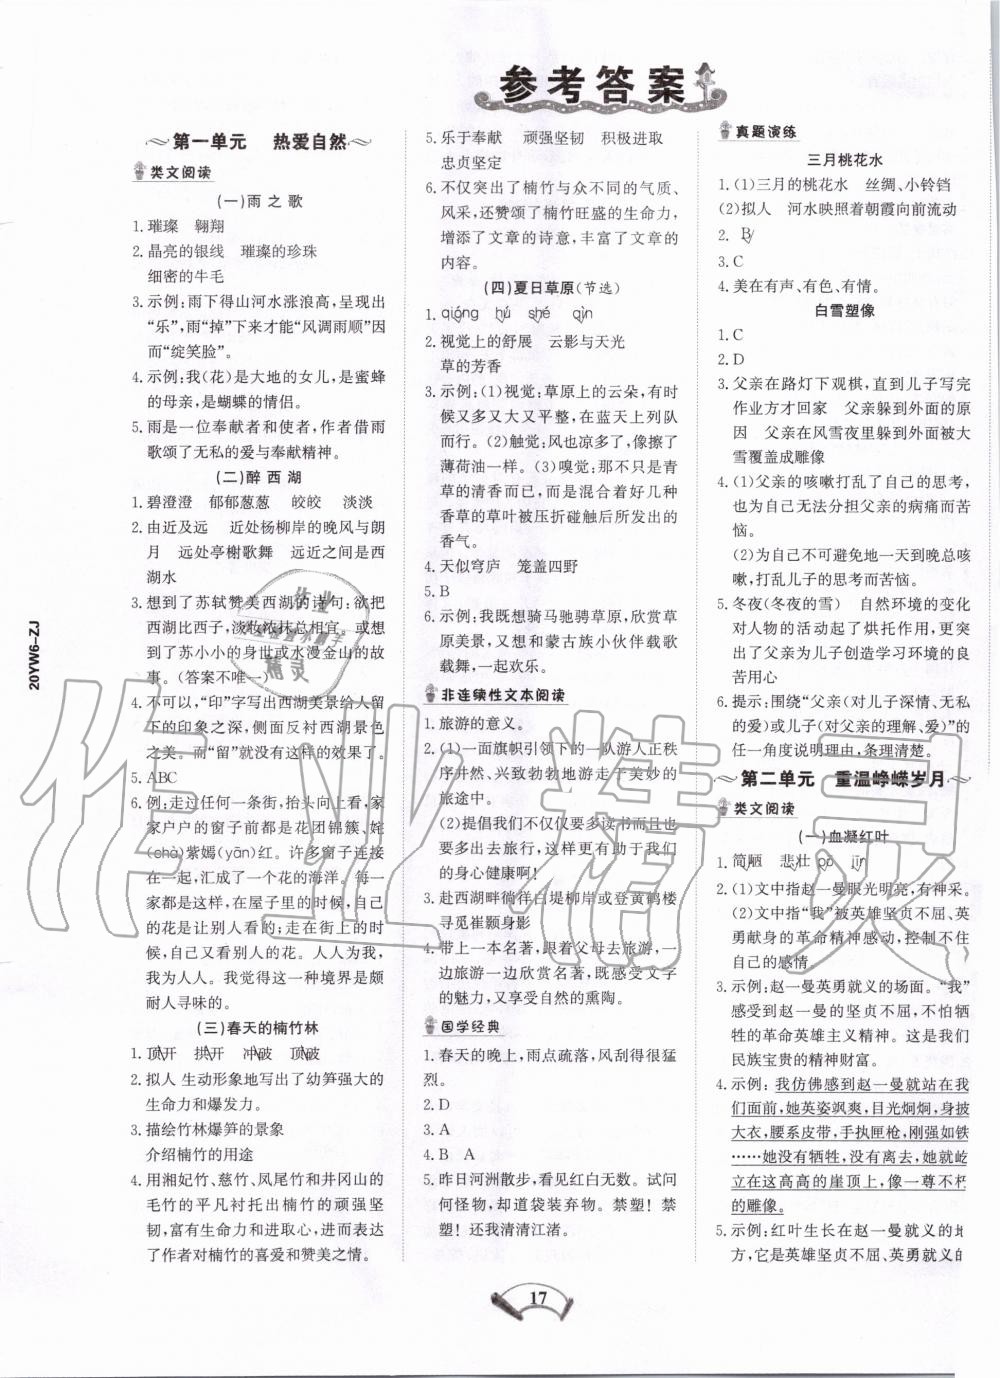 参考答案
第一单元 热爱自然
类文阅读
(一)雨之歌
1. 璀璨 翱翔
2. 晶亮的银线 璀璨的珍珠
细密的牛毛
3. 示例:雨下得山河水涨浪高,呈现出
“乐”,雨“掉”下来才能“风调雨顺”因
而“绽笑脸”。
4. 示例:我(花)是大地的女儿,是蜜蜂
的母亲,是蝴蝶的情侣。
5. 雨是一位奉献者和使者,作者借雨
歌颂了无私的爱与奉献精神。
(二)醉西湖
1. 碧澄澄 郁郁葱葱 皎皎 淡淡
2. 由近及远 近处杨柳岸的晚风与朗
月 远处亭榭歌舞 近远之间是西
湖水
3. 想到了苏轼赞美西湖的诗句:欲把
西湖比西子,淡妆浓抹总相宜。或
想到了苏小小的身世或水漫金山的故
事。(答案不唯一)
4. 不可以,“印”字写出西湖美景给人留
下的印象之深,侧面反衬西湖景色
之美。而“留”就没有这样的效果了。
5. ABC
6. 例:走过任何一条街,抬头向上看,家
家户户的窗子前都是花团锦簇、姹
(chà)紫嫣(yān)红。许多窗子连接
在一起,汇成了一个花的海洋。每一
家都是这样,在屋子里的时候,自己
的花是让别人看的;走在街上的时
候,自己又看别人的花。人人为我,
我为人人。我觉得这一种境界是颇
耐人寻味的。
(三)春天的楠竹林
1. 顶开 拱开 冲破 顶破
2. 拟人 生动形象地写出了幼笋强大的
生命力和爆发力。
3. 描绘竹林爆笋的景象
介绍楠竹的用途
4. 用湘妃竹、慈竹、凤尾竹和井冈山的
毛竹的平凡衬托出楠竹的顽强坚
韧,富有生命力和进取心,进而表达
了作者对楠竹的喜爱和赞美之情。
5. 乐于奉献 顽强坚韧 积极进取
忠贞坚定
6. 不仅突出了楠竹与众不同的气质、
风采,还赞颂了楠竹旺盛的生命力,
增添了文章的诗意,丰富了文章的
内容。
(四)夏日草原(节选)
1. qióng hú shé qìn
2. 视觉上的舒展 云影与天光
草的芳香
3. 示例:(1)视觉:草原上的云朵,有时
候又多又大又平整,在蓝天上列队
而行。(2)触觉:风也凉多了,像擦了
薄荷油一样。(3)嗅觉:那不只是青
草的清香而已,而是混合着好几种
香草的草叶被压折碰触后所发出的
香气。
4. 天似穹庐 笼盖四野
5. B
6. 示例:我既想骑马驰骋草原,欣赏草
原美景,又想和蒙古族小伙伴载歌
载舞,一起欢乐。
非连续性文本阅读
1. 旅游的意义。
2. (1)一面旗帜引领下的一队游人正秩
序井然、兴致勃勃地游走于美妙的
旅途中。
(2)提倡我们不仅仅要多读书而且也
要多出去旅行,这样更有助于我们
的身心健康啊!
3. 赴西湖畔徜徉白堤柳岸或登黄鹤楼
寻觅崔颢身影
4. 带上一本名著,跟着父母去旅游,一
边旅游一边欣赏名著,感受文字
的魅力,又享受自然的熏陶。
国学经典
1. 春天的晚上,雨点疏落,风刮得很猛
烈。
2. D
3. A
4. B A
5. 昨日河洲散步,看见红白无数。试问
何怪物,却道袋装弃物。禁塑!禁
塑!还我清清江渚。
真题演练
三月桃花水
1. (1)三月的桃花水 丝绸、小铃铛
(2)拟人 河水映照着朝霞向前流动
2. B
3. C
4. 美在有声、有色、有情。
白雪塑像
1. C
2. D
3. 父亲在路灯下观棋,直到儿子写完
作业方才回家 父亲躲到外面的原
因 父亲在风雪夜里躲到外面被大
雪覆盖成雕像
4. (1)父亲的咳嗽打乱了自己的思考,
也为自己无法分担父亲的病痛而苦
恼。
(2)为自己不可避免地一天到晚总咳
嗽,打乱儿子的思考而愧疚。
5. 冬夜(冬夜的雪) 自然环境的变化
对人物的活动起了烘托作用,更突
出了父亲为儿子创造学习环境的良
苦用心
6. 提示:围绕“父亲(对儿子深情、无私
的爱)或儿子(对父亲的理解、爱)”的
任一角度说明理由,条理清楚。
第二单元 重温峥嵘岁月
类文阅读
(一)血凝红叶
1. 简陋 悲壮 pō jīn
2. (1)文中指赵一曼眼光明亮,有神采。
(2)文中指“我”被英雄坚贞不屈、英
勇献身的革命精神感动,控制不住
自己的感情。
3. 示例:赵一曼英勇就义的场面。“我”
感受到赵一曼的坚贞不屈、不怕牺
牲的革命英雄主义精神。这是我们
民族宝贵的精神财富。
4. 示例:我仿佛感到赵一曼就站在我
们面前,她英姿飒爽,目光炯炯,身披
大衣,腰系皮带,手执匣枪,刚强如铁
……她没有牺牲,没有离去,她就屹
立在这高高的崖顶上,像一尊不朽
的雕像。
5. 示例:红叶生长在赵一曼就义的地
方,它是英雄坚贞不屈、英勇就义的
20YW6-ZJ
17
作业精灵
作业
精灵